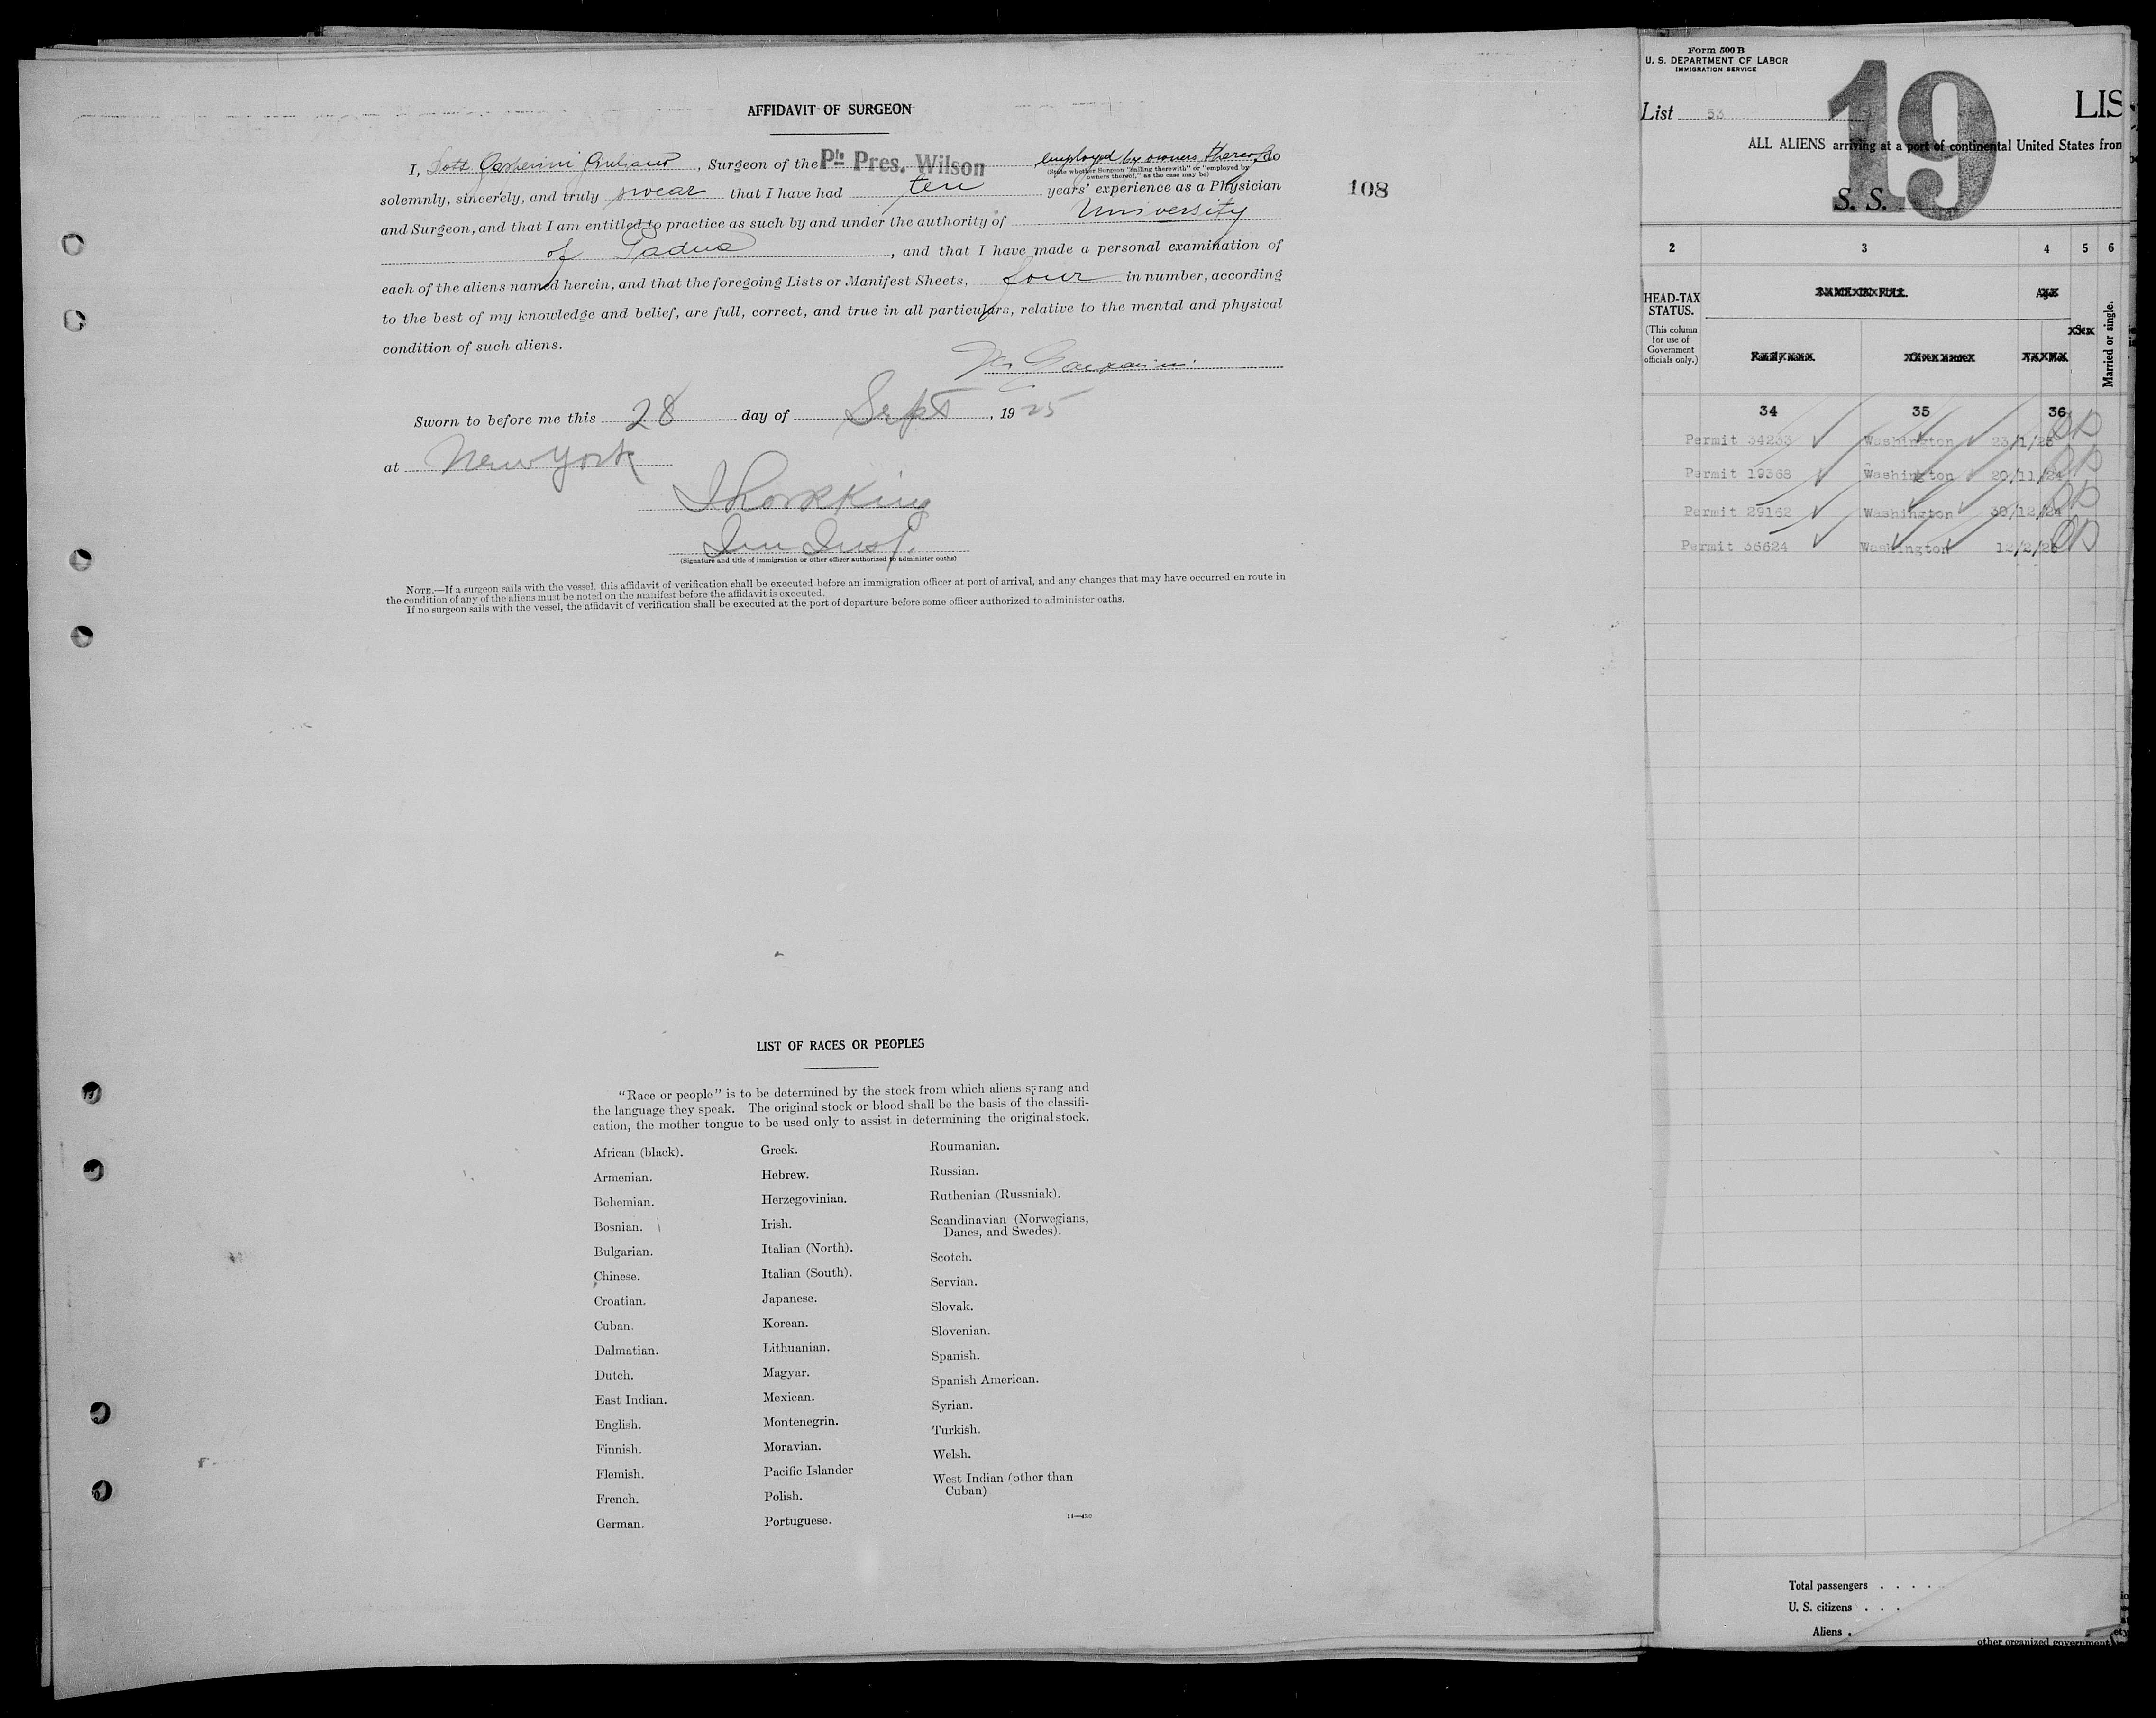 AFFIDAVIT OF SURGEON
I, Dott Giuliano, Surgeon of the Pte Pres. Wilson employed by owners thereof, do
(State whether Surgeon "sailing therewith" or "employed by
owners thereof," as the case may be)
solemnly, sincerely, and truly swear that I have had ten years' experience as a Physician
and Surgeon, and that I am entitled to practice as such by and under the authority of University
of Padua, and that I have made a personal examination of
each of the aliens named herein, and that the foregoing Lists or Manifest Sheets, four in number, according
to the best of my knowledge and belief, are full, correct, and true in all particulars, relative to the mental and physical
condition of such aliens.
Sworn to before me this 28 day of Sept, 1925
at New York
Imm Insp.
(Signature and title of immigration or other officer authorized to administer oaths)
NOTE.—If a surgeon sails with the vessel, this affidavit of verification shall be executed before an immigration officer at port of arrival, and any changes that may have occurred en route in
the condition of any of the aliens must be noted on the manifest before the affidavit is executed.
If no surgeon sails with the vessel, the affidavit of verification shall be executed at the port of departure before some officer authorized to administer oaths.
108
LIST OF RACES OR PEOPLES
"Race or people" is to be determined by the stock from which aliens sprang and
the language they speak. The original stock or blood shall be the basis of the classifi-
cation, the mother tongue to be used only to assist in determining the original stock.
African (black).
Armenian.
Bohemian.
Bosnian.
Bulgarian.
Chinese.
Croatian.
Cuban.
Dalmatian.
Dutch.
East Indian.
English.
Finnish.
Flemish.
French.
German.
Greek.
Hebrew.
Herzegovinian.
Irish.
Italian (North).
Italian (South).
Japanese.
Korean.
Lithuanian.
Magyar.
Mexican.
Montenegrin.
Moravian.
Pacific Islander
Polish.
Portuguese.
Roumanian.
Russian.
Ruthenian (Russniak).
Scandinavian (Norwegians,
Danes, and Swedes).
Scotch.
Servian.
Slovak.
Slovenian.
Spanish.
Spanish American.
Syrian.
Turkish.
Welsh.
West Indian (other than
Cuban)
Form 500 B
U. S. DEPARTMENT OF LABOR
IMMIGRATION SERVICE
19
List 53
LIS
ALL ALIENS arriving at a port of continental United States from
S. S.
2 3 4 5 6
HEAD-TAX
STATUS.
(This column
for use of
Government
officials only.)
Married or single.
34 35 36
Permit 34233 Washington 23/1/25
Permit 19368 Washington 20/11/24
Permit 29162 Washington 30/12/24
Permit 36624 Washington 12/2/25
Total passengers . . . . .
U. S. citizens . . .
Aliens .
other organized government